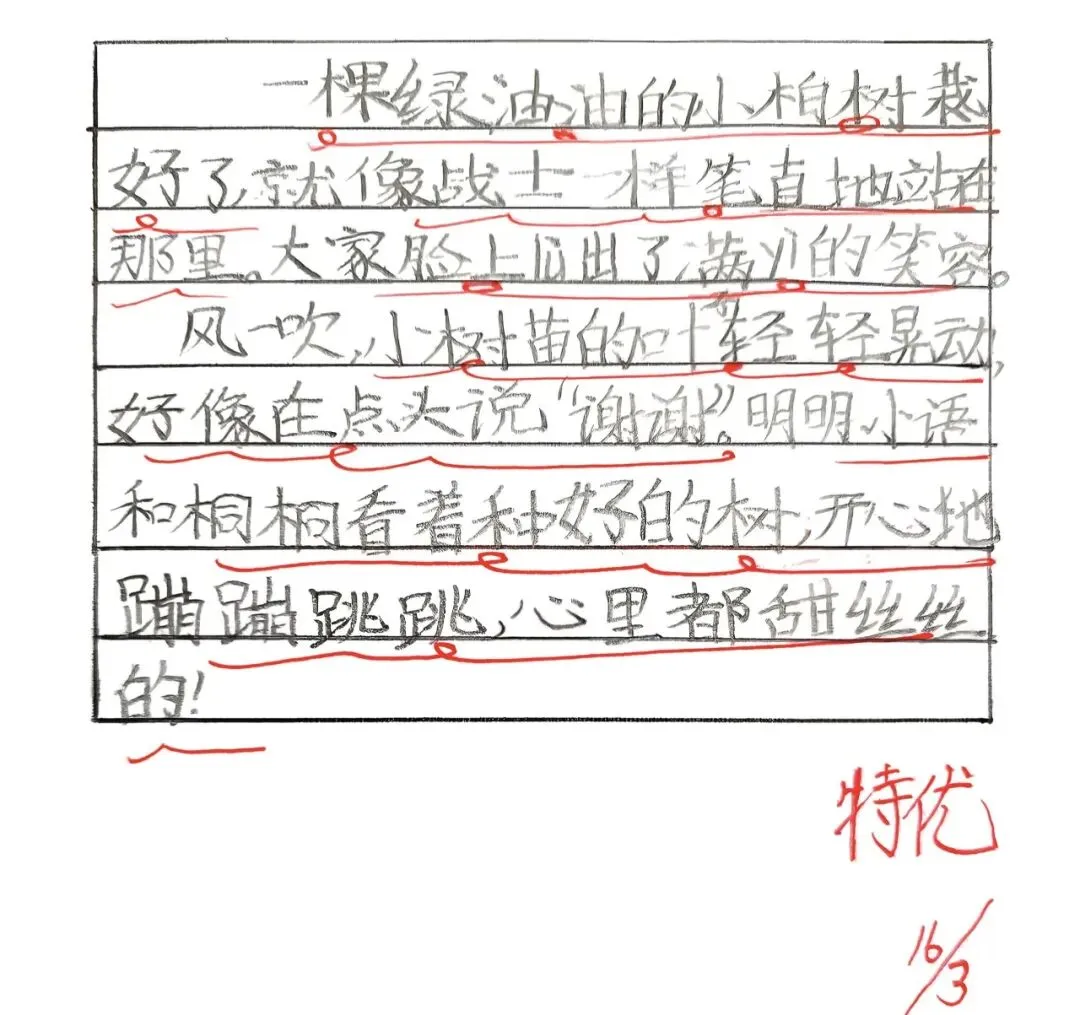 一棵绿油油的小柏树栽
好了,就像战士一样笔直地站在
那里。大家脸上们出了满Y的笑容。
风一吹,小树苗的叶子轻轻晃动,
好像在点头说“谢谢”。明明小语
和桐桐看着种好的树,开心地
蹦蹦跳跳,心里都甜丝丝
的!
特优
16/3